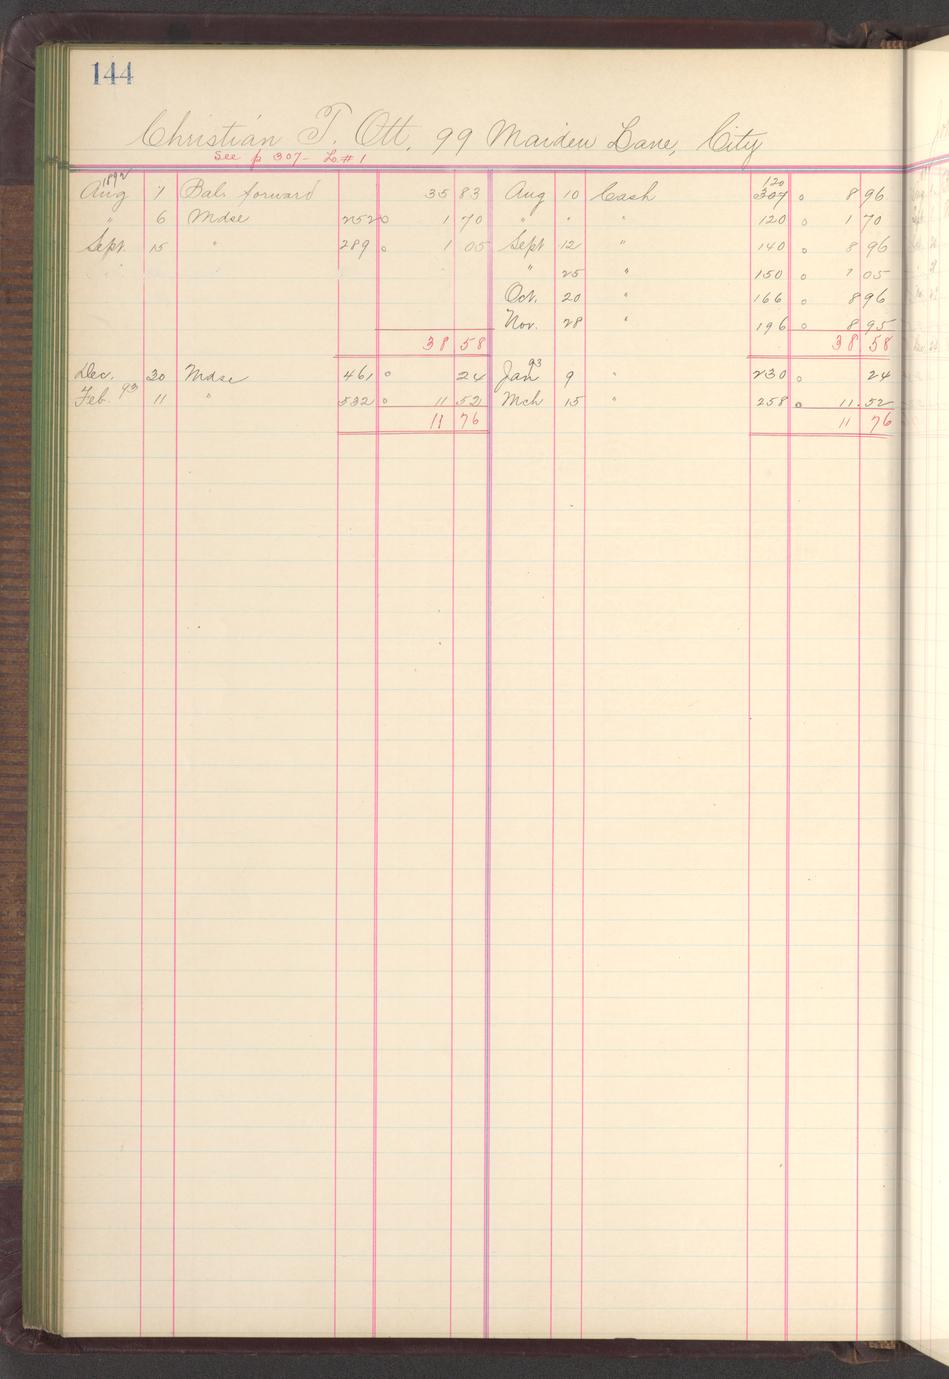 144
Christian T. Ott, 99 Maiden Lane, City
See p 307- L. # 1
1892 120
Aug 1 Bal. forward 35 83 Aug 10 Cash 307 o 8 96
" 6 Mdse 252 o 1 70 " " " 120 o 1 70
Sept 15 " 289 o 1 05 Sept 12 " 140 o 8 96
" 25 " 150 o 1 05
Oct. 20 " 166 o 8 96
Nov. 28 " 196 o 8 95
38 58 38 58
Dec. 20 Mdse 461 o 24 Jan 93 9 " 230 o 24
Feb. 93 11 " 532 o 11 52 Mch 15 " 258 o 11.52
11 76 11 76